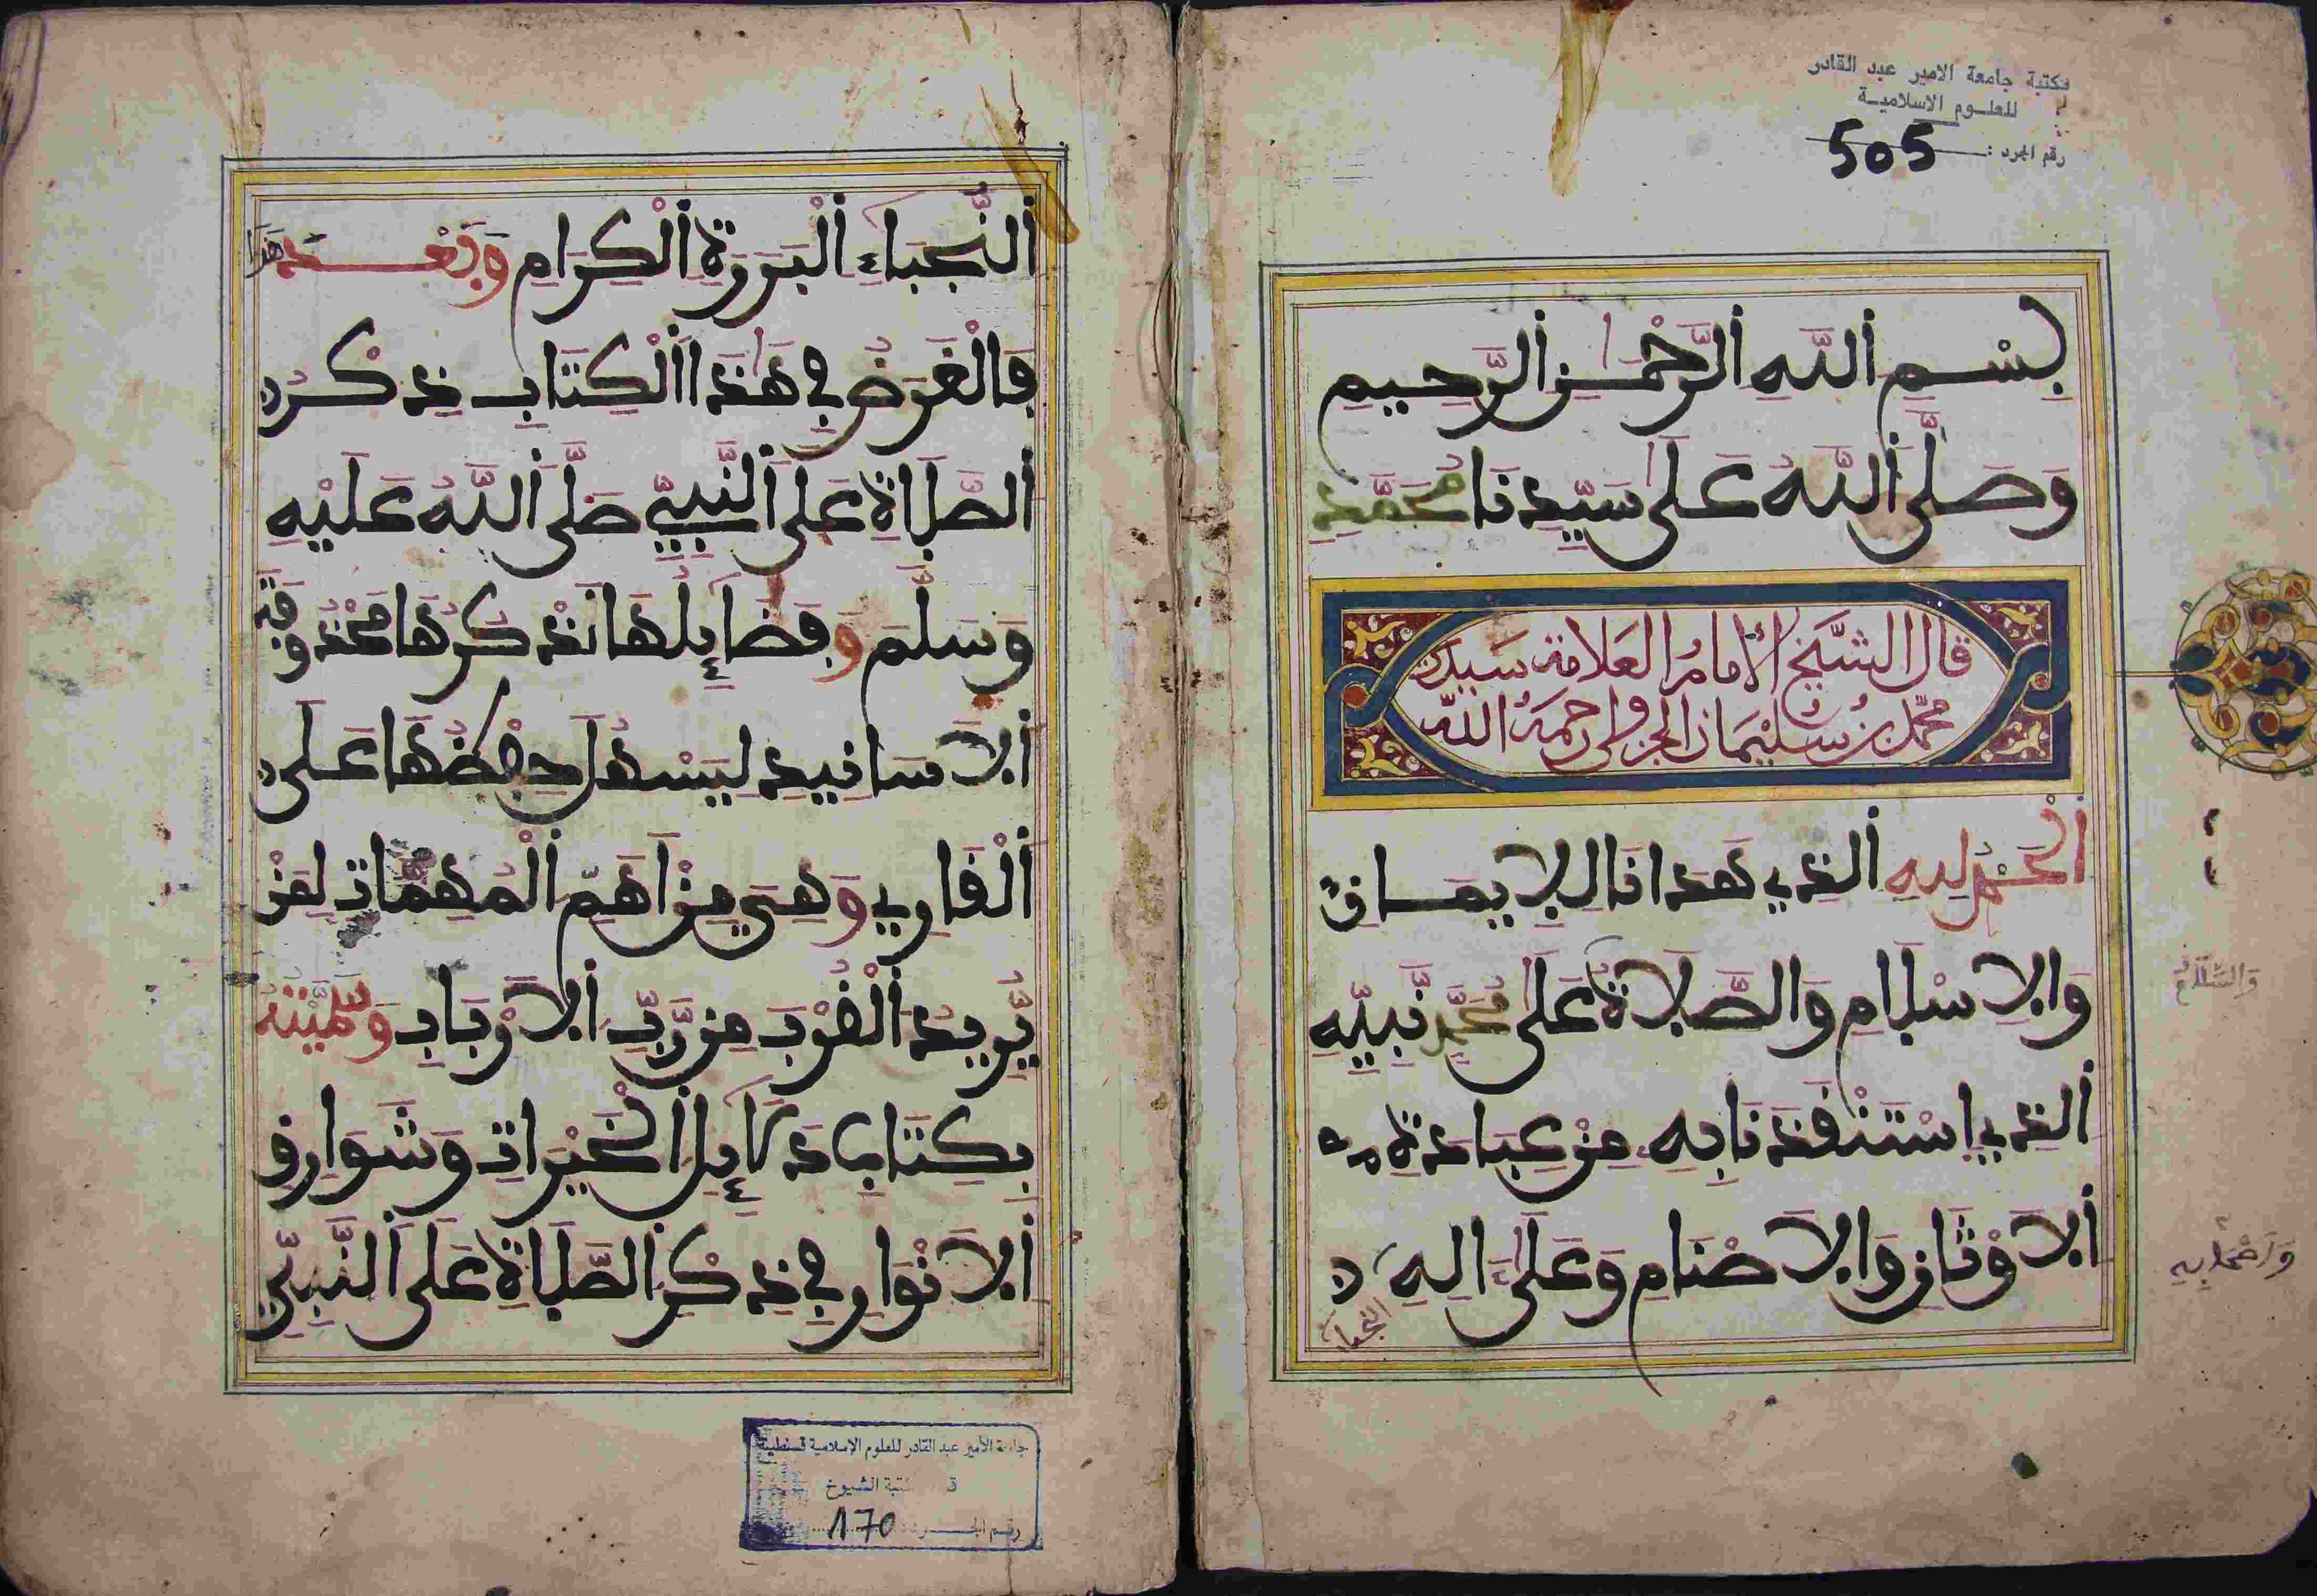 مكتبة جامعة الامير عبد القادر
للعلوم الاسلامية
رقم الجرد : 505
بِسْمِ اَللَّهِ اَلرَّحْمٰنِ اَلرَّحِيمِ
وَصَلَّى اَللَّهُ عَلَى سَيِّدِنَا مُحَمَّدٍ
قال الشيخ الإمام العلامة سيدي
محمد بن سليمان الجزولي رحمه الله
اَلْحَمْدُ لِلهِ اَلذِي هَدَانَا لِلِايمَانِ
وَالِاسْلَامِ وَالصَّلَاةُ عَلَى مُحَمَّدٍ نَّبِيِّهِ
وَالسَّلَامُ
اَلذِي اِسْتَنْقَذَنَا بِهِ مِنْ عِبَادَةِ
اَلَاوْثَانِ وَالَاصْنَامِ وَعَلَى ءَالِهِ
وَأَصْحَابِهِ
النجباء
اَلنُّجَبَاءِ اَلْبَرَرَةِ اَلْكِرَامِ وَبَعْدَ هَذَا
فَالْغَرَضُ فِي هَذَا اَلْكِتَابِ ذِكْرُ
اَلصَّلَاةِ عَلَى اَلنَّبِيِّ صَلَّى اَللَّهُ عَلَيْهِ
وَسَلَّمَ وَفَضَائِلِهَا نَذْكُرُهَا مَحْذُوفَةَ
اَلَاسَانِيدِ لِيَسْهُلَ حِفْظُهَا عَلَى
اَلْقَارِي وَهِيَ مِنْ اَهَمِّ اَلْمُهِمَّاتِ لِمَنْ
يُّرِيدُ اَلْقُرْبَ مِن رَّبِّ اَلَارْبَابِ وَسَمَّيْتُهُ
بِكِتَابِ دَلَائِلِ اَلْخَيْرَاتِ وَشَوَارِقِ
اَلَانْوَارِ فِي ذِكْرِ اَلصَّلَاةِ عَلَى اَلنَّبِيِّ
جامعة الأمير عبد القادر للعلوم الإسلامية قسنطينة
مكتبة الشيوخ
رقم الجرد : 170